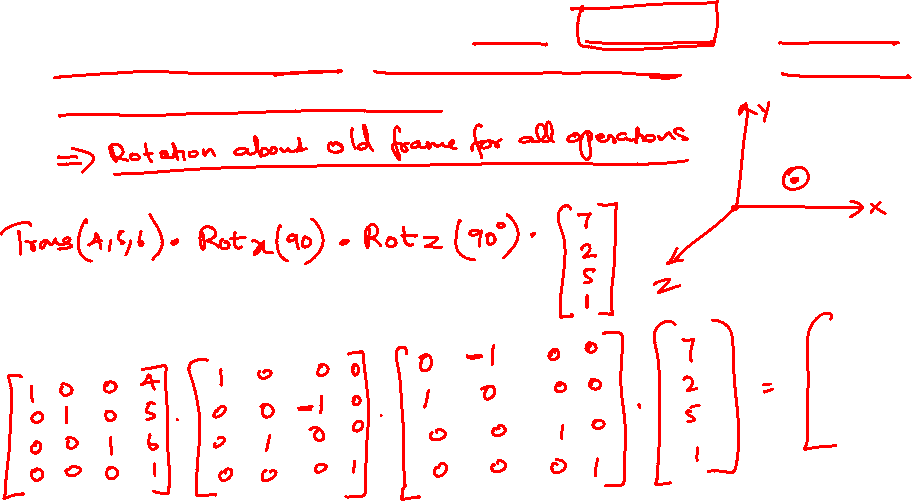 ⇒ Rotation about old frame for all operations
Y
X
Z
Trans(4,5,6) · Rotx(90) · Rotz(90°) · [7 2 5 1]
[1 0 0 4] · [1 0 0 0] · [0 -1 0 0] · [7] = [
[0 1 0 5] [0 0 -1 0] [1 0 0 0] [2]
[0 0 1 6] [0 1 0 0] [0 0 1 0] [5]
[0 0 0 1] [0 0 0 1] [0 0 0 1] [1]